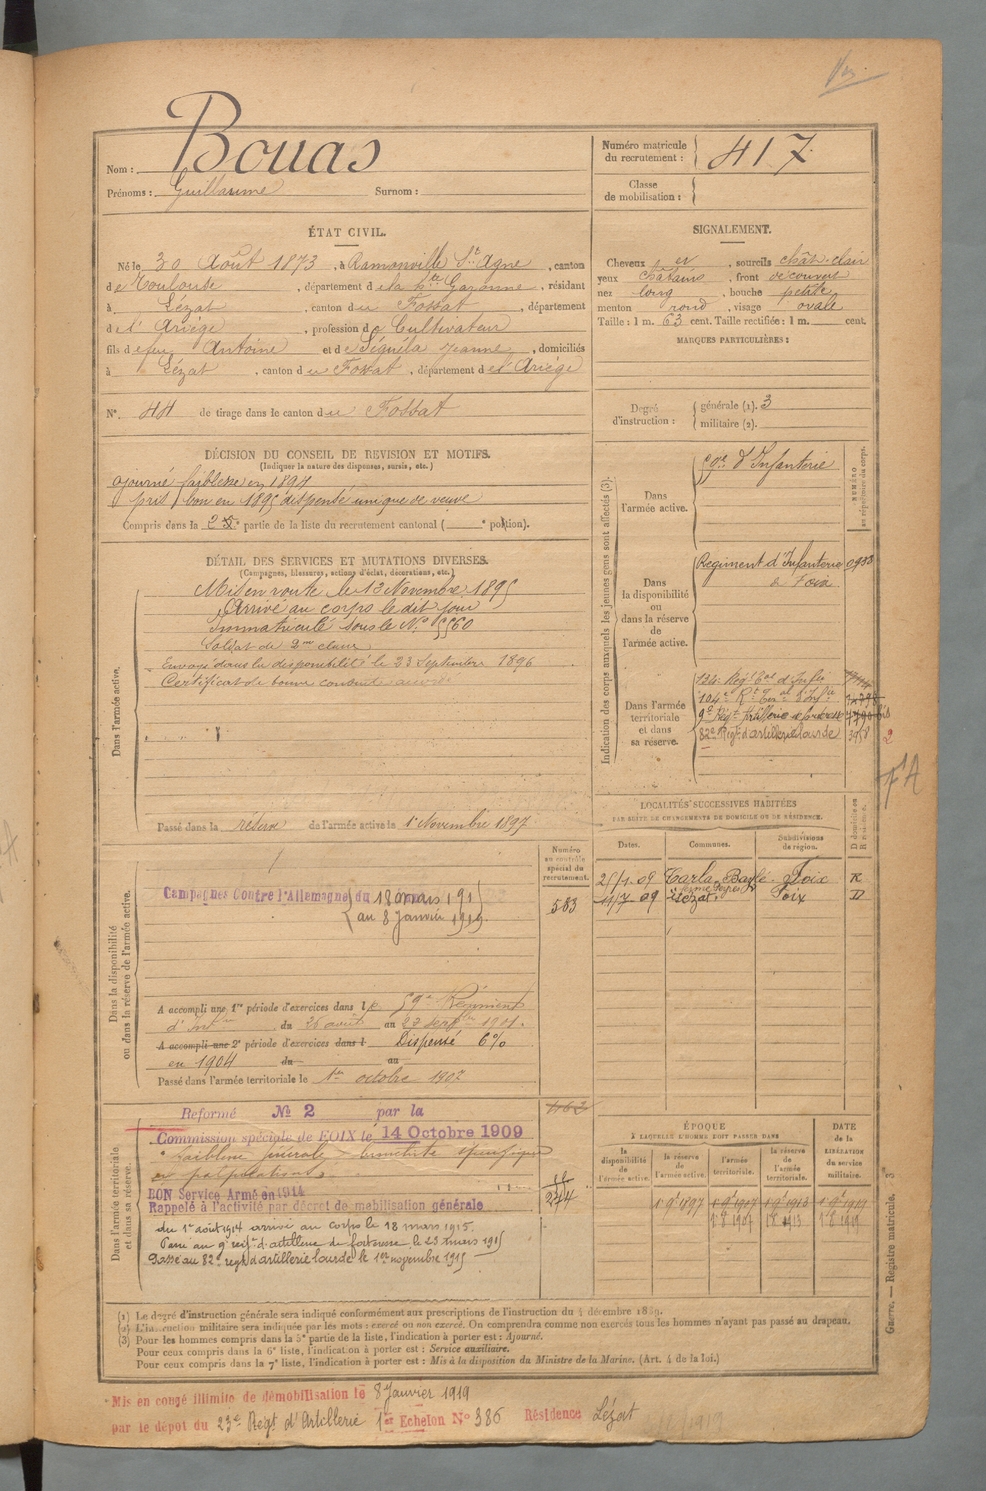 Nom : Bouas
Prénoms : Guillaume Surnom :
Numéro matricule du recrutement : 417
Classe de mobilisation :
ÉTAT CIVIL.
Né le 30 Août 1873, à Ramonville St Agne, canton
de Toulouse, département de la hte Garonne, résidant
à Lézat, canton du Fossat, département
de l'Ariège, profession de Cultivateur
fils de feu Antoine et de Séguéla Jeanne, domiciliés
à Lézat, canton du Fossat, département de l'Ariège
N° 44 de tirage dans le canton du Fossat
SIGNALEMENT.
Cheveux et, sourcils chât. clair
yeux châtains, front découvert
nez long, bouche petite
menton rond, visage ovale
Taille : 1 m. 63 cent. Taille rectifiée : 1 m. cent.
MARQUES PARTICULIÈRES :
Degré d'instruction :
générale (1). 3
militaire (2).
DÉCISION DU CONSEIL DE REVISION ET MOTIFS.
(Indiquer la nature des dispenses, sursis, etc.)
ajourné faiblesse en 1894
bon en 1895 dispensé unique de veuve
Compris dans la 2e partie de la liste du recrutement cantonal ( e portion).
DÉTAIL DES SERVICES ET MUTATIONS DIVERSES.
(Campagnes, blessures, actions d'éclat, décorations, etc.)
Dans l'armée active.
Mis en route le 13 Novembre 1895
Arrivé au corps le dit jour
Immatriculé sous le N° 5560
Soldat de 2me classe
Envoyé dans la disponibilité le 23 Septembre 1896
Certificat de bonne conduite accordé
Passé dans la réserve de l'armée active le 1er Novembre 1897
Indication des corps auxquels les jeunes gens sont affectés (3).
NUMÉRO au répertoire du corps.
Dans l'armée active.
59e d'Infanterie
Dans la disponibilité ou dans la réserve de l'armée active.
Régiment d'Infanterie 0988
de Foix
Dans l'armée territoriale et dans sa réserve.
134e Régt Eal d'Infie
104e Rt Terral d'Infie
9e Régt Artillerie
82e Regt d'artillerie lourde 3958
LOCALITÉS SUCCESSIVES HABITÉES
PAR SUITE DE CHANGEMENTS DE DOMICILE OU DE RÉSIDENCE.
Dates. Communes. Subdivisions de région. D domicile ou R résidence.
25/1.09 Carla-Bayle Foix R
11/7 09 Lézat Foix D
Dans la disponibilité ou dans la réserve de l'armée active.
Numéro au contrôle spécial du recrutement.
583
Campagnes Contre l'Allemagne du 18 mars 1915
au 8 Janvier 1919
A accompli une 1re période d'exercices dans le 59e Régiment
d'Infie du 26 août au 22 septbre 1901.
A accompli une 2e période d'exercices dans l Dispensé 6%
en 1904 du au
Passé dans l'armée territoriale le 1er octobre 1907
Dans l'armée territoriale et dans sa réserve.
Reformé N° 2 par la
Commission spéciale de FOIX le 14 Octobre 1909
Faiblesse générale
et palpitations
BON Service Armé en 1914
Rappelé à l'activité par décret de mobilisation générale
du 1er août 1914 arrivé au corps le 18 mars 1915.
Passé au 9e regt d'artillerie de forteresse le 23 mars 1915
Passé au 82e regt d'artillerie lourde le 1er novembre 1915
ÉPOQUE
À LAQUELLE L'HOMME DOIT PASSER DANS
la disponibilité de l'armée active.
la réserve de l'armée active.
l'armée territoriale.
la réserve de l'armée territoriale.
DATE de la LIBÉRATION du service militaire.
1 9 1897
Guerre. — Registre matricule.
(1) Le degré d'instruction générale sera indiqué conformément aux prescriptions de l'instruction du 4 décembre 1889.
(2) L'instruction militaire sera indiquée par les mots : exercé ou non exercé. On comprendra comme non exercés tous les hommes n'ayant pas passé au drapeau.
(3) Pour les hommes compris dans la 5e partie de la liste, l'indication à porter est : Ajourné.
Pour ceux compris dans la 6e liste, l'indication à porter est : Service auxiliaire.
Pour ceux compris dans la 7e liste, l'indication à porter est : Mis à la disposition du Ministre de la Marine. (Art. 4 de la loi.)
Mis en congé illimité de démobilisation le 8 Janvier 1919
par le dépot du 23e Regt d'Artillerie 1er Echelon N° 386 Résidence Lézat